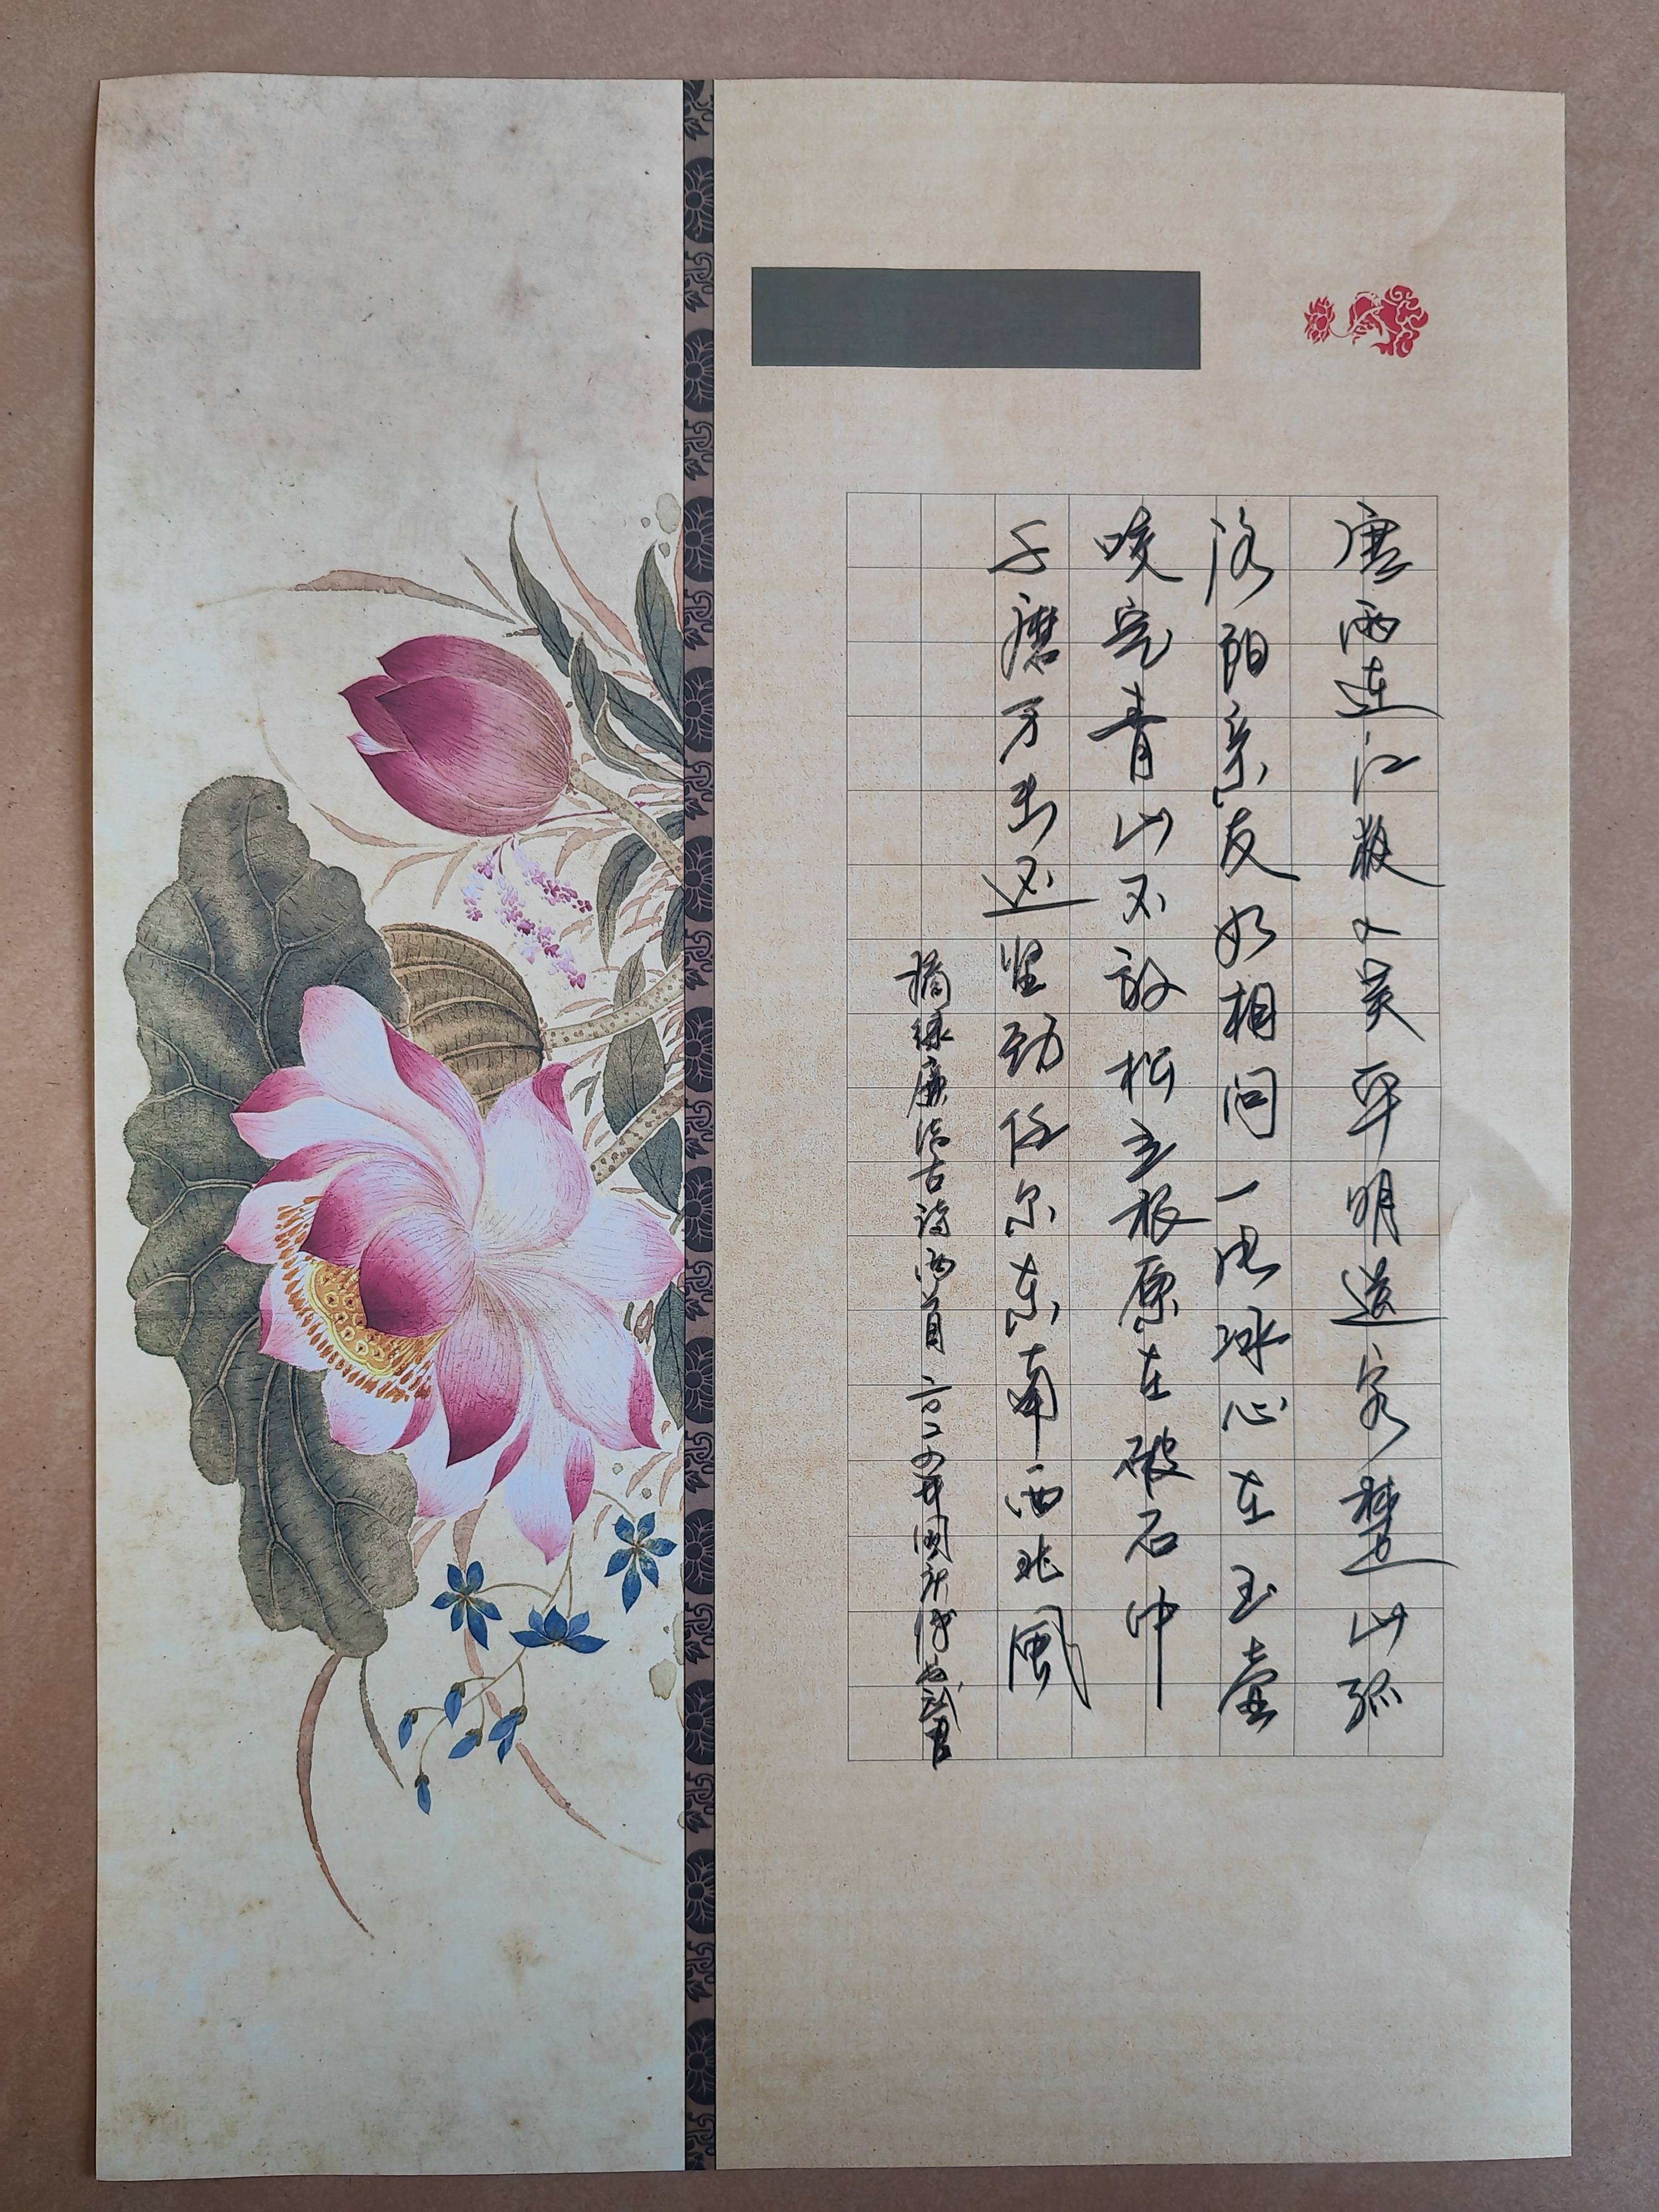 寒雨连江夜入吴平明送客楚山孤
洛阳亲友如相问一片冰心在玉壶
咬定青山不放松立根原在破石中
千磨万击还坚劲任尔东南西北风
摘录廉洁古诗两首 二〇二